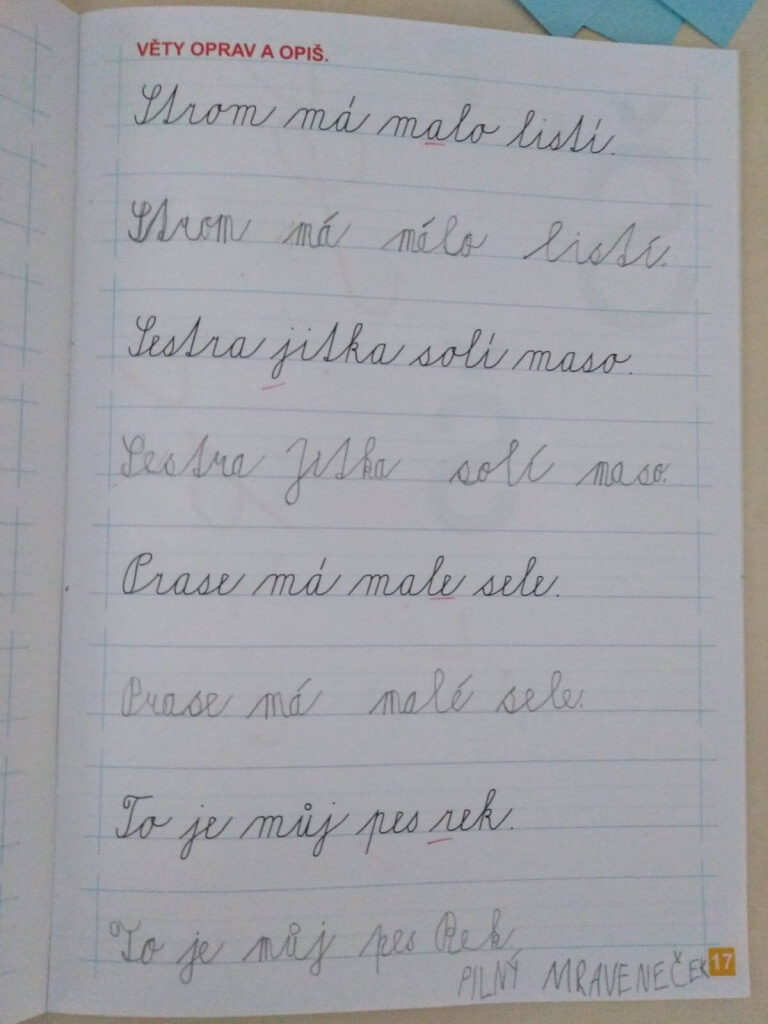 VĚTY OPRAV A OPIŠ.
Strom má malo listí.
Strom má málo listí.
Sestra jitka solí maso.
Sestra Jitka solí maso.
Prase má male sele.
Prase má malé sele.
To je můj pes rek.
To je můj pes Rek.
PILNÝ MRAVENEČEK
17